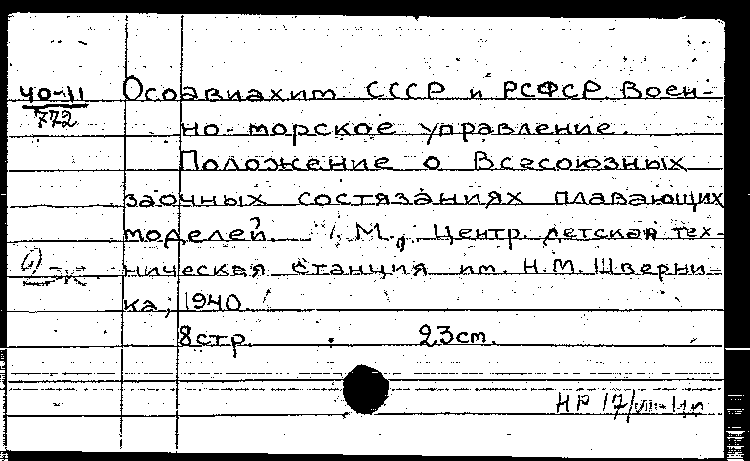 40-11
772
Осоавиахим СССР и РСФСР. Воен-
но-морское управление.
Положение о Всесоюзных
заочных состязаниях плавающих
моделей. М., Центр. детская тех-
ническая станция им. Н.М. Шверни-
ка, 1940.
8 стр. 23 см.
НР 17/VIII-40